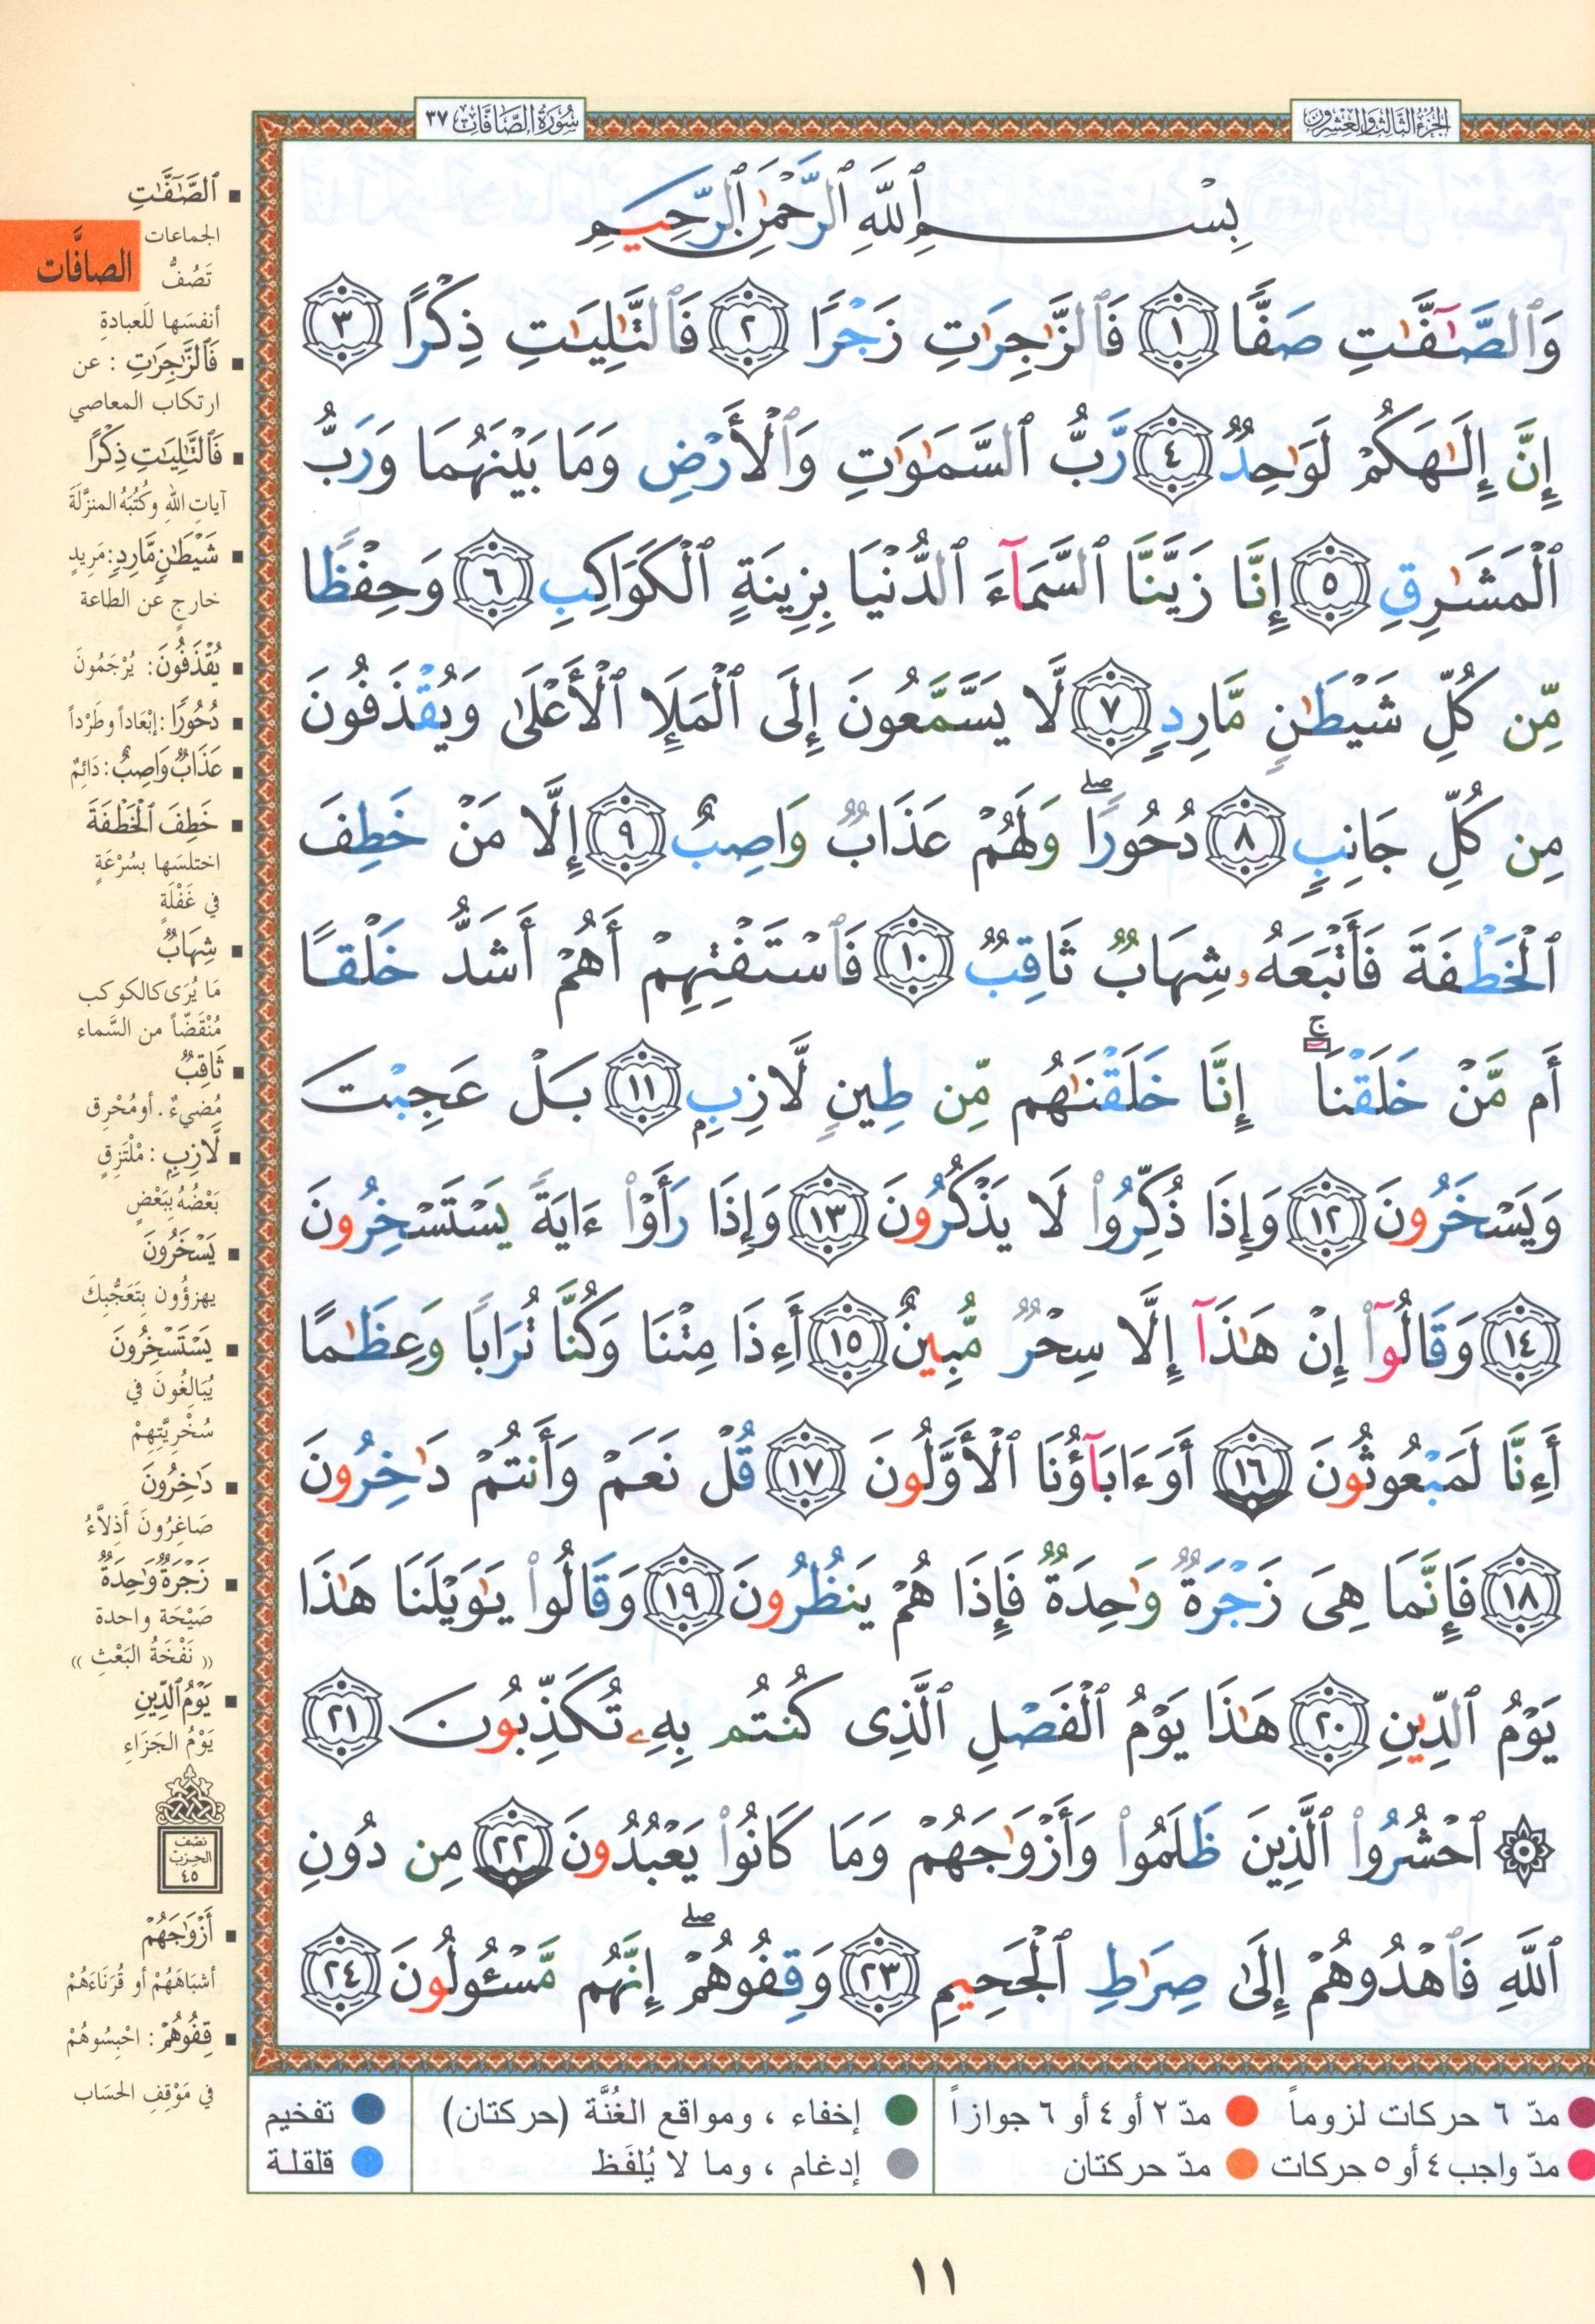 الجزء الثالث والعشرون
سورة الصافات ٣٧
بِسْمِ ٱللَّهِ ٱلرَّحْمَٰنِ ٱلرَّحِيمِ
وَٱلصَّٰٓفَّٰتِ صَفًّا ١ فَٱلزَّٰجِرَٰتِ زَجْرًا ٢ فَٱلتَّٰلِيَٰتِ ذِكْرًا ٣
إِنَّ إِلَٰهَكُمْ لَوَٰحِدٌ ٤ رَّبُّ ٱلسَّمَٰوَٰتِ وَٱلْأَرْضِ وَمَا بَيْنَهُمَا وَرَبُّ
ٱلْمَشَٰرِقِ ٥ إِنَّا زَيَّنَّا ٱلسَّمَآءَ ٱلدُّنْيَا بِزِينَةٍ ٱلْكَوَاكِبِ ٦ وَحِفْظًا
مِّن كُلِّ شَيْطَٰنٍ مَّارِدٍ ٧ لَّا يَسَّمَّعُونَ إِلَى ٱلْمَلَإِ ٱلْأَعْلَىٰ وَيُقْذَفُونَ
مِن كُلِّ جَانِبٍ ٨ دُحُورًا ۖ وَلَهُمْ عَذَابٌ وَاصِبٌ ٩ إِلَّا مَنْ خَطِفَ
ٱلْخَطْفَةَ فَأَتْبَعَهُۥ شِهَابٌ ثَاقِبٌ ١٠ فَٱسْتَفْتِهِمْ أَهُمْ أَشَدُّ خَلْقًا
أَم مَّنْ خَلَقْنَا ۚ إِنَّا خَلَقْنَٰهُم مِّن طِينٍ لَّازِبٍۭ ١١ بَلْ عَجِبْتَ
وَيَسْخَرُونَ ١٢ وَإِذَا ذُكِّرُوا۟ لَا يَذْكُرُونَ ١٣ وَإِذَا رَأَوْا۟ ءَايَةً يَسْتَسْخِرُونَ
١٤ وَقَالُوٓا۟ إِنْ هَٰذَآ إِلَّا سِحْرٌ مُّبِينٌ ١٥ أَءِذَا مِتْنَا وَكُنَّا تُرَابًا وَعِظَٰمًا
أَءِنَّا لَمَبْعُوثُونَ ١٦ أَوَءَابَآؤُنَا ٱلْأَوَّلُونَ ١٧ قُلْ نَعَمْ وَأَنتُمْ دَٰخِرُونَ
١٨ فَإِنَّمَا هِىَ زَجْرَةٌ وَٰحِدَةٌ فَإِذَا هُمْ يَنظُرُونَ ١٩ وَقَالُوا۟ يَٰوَيْلَنَا هَٰذَا
يَوْمُ ٱلدِّينِ ٢٠ هَٰذَا يَوْمُ ٱلْفَصْلِ ٱلَّذِى كُنتُم بِهِۦ تُكَذِّبُونَ ٢١
۞ ٱحْشُرُوا۟ ٱلَّذِينَ ظَلَمُوا۟ وَأَزْوَٰجَهُمْ وَمَا كَانُوا۟ يَعْبُدُونَ ٢٢ مِن دُونِ
ٱللَّهِ فَٱهْدُوهُمْ إِلَىٰ صِرَٰطِ ٱلْجَحِيمِ ٢٣ وَقِفُوهُمْ ۖ إِنَّهُم مَّسْـُٔولُونَ ٢٤
الصافَّات
▪ ٱلصَّٰٓفَّٰتِ
الجماعات
تَصُفُّ
أنفسَها للعبادةِ
▪ فَٱلزَّٰجِرَٰتِ : عن
ارتكاب المعاصي
▪ فَٱلتَّٰلِيَٰتِ ذِكْرًا
آياتِ اللهِ وكُتُبَهُ المنزَّلَةَ
▪ شَيْطَٰنٍ مَّارِدٍ: مَرِيدٍ
خارجٍ عن الطاعة
▪ يُقْذَفُونَ: يُرْجَمُونَ
▪ دُحُورًا: إبْعَاداً وطَرْداً
▪ عَذَابٌ وَاصِبٌ: دَائِمٌ
▪ خَطِفَ ٱلْخَطْفَةَ
اختلسَها بسُرْعَةٍ
في غَفْلَةٍ
▪ شِهَابٌ
مَا يُرَى كالكوكب
مُنْقَضّاً من السَّماء
▪ ثَاقِبٌ
مُضيءٌ. أو مُحْرِق
▪ لَّازِبٍ: مُلْتَزِقٍ
بَعْضُهُ بِبَعْضٍ
▪ يَسْخَرُونَ
يهزؤُون بِتَعَجُّبِكَ
▪ يَسْتَسْخِرُونَ
يُبَالِغُونَ في
سُخْرِيَّتِهِمْ
▪ دَٰخِرُونَ
صَاغِرُونَ أَذِلاَّءُ
▪ زَجْرَةٌ وَٰحِدَةٌ
صَيْحَة واحدة
« نَفْخَةُ البَعْثِ »
▪ يَوْمُ ٱلدِّينِ
يَوْمُ الجَزَاءِ
نصف
الحزب
٤٥
▪ أَزْوَٰجَهُمْ
أشبَاهَهُمْ أو قُرَنَاءَهُمْ
▪ قِفُوهُمْ: احْبِسُوهُمْ
في مَوْقِفِ الحسَاب
مدّ ٦ حركات لزوماً مدّ ٢ أو ٤ أو ٦ جوازاً إخفاء ، ومواقع الغُنَّة (حركتان) تفخيم
مدّ واجب ٤ أو ٥ حركات مدّ حركتان إدغام ، وما لا يُلفَظ قلقلة
١١